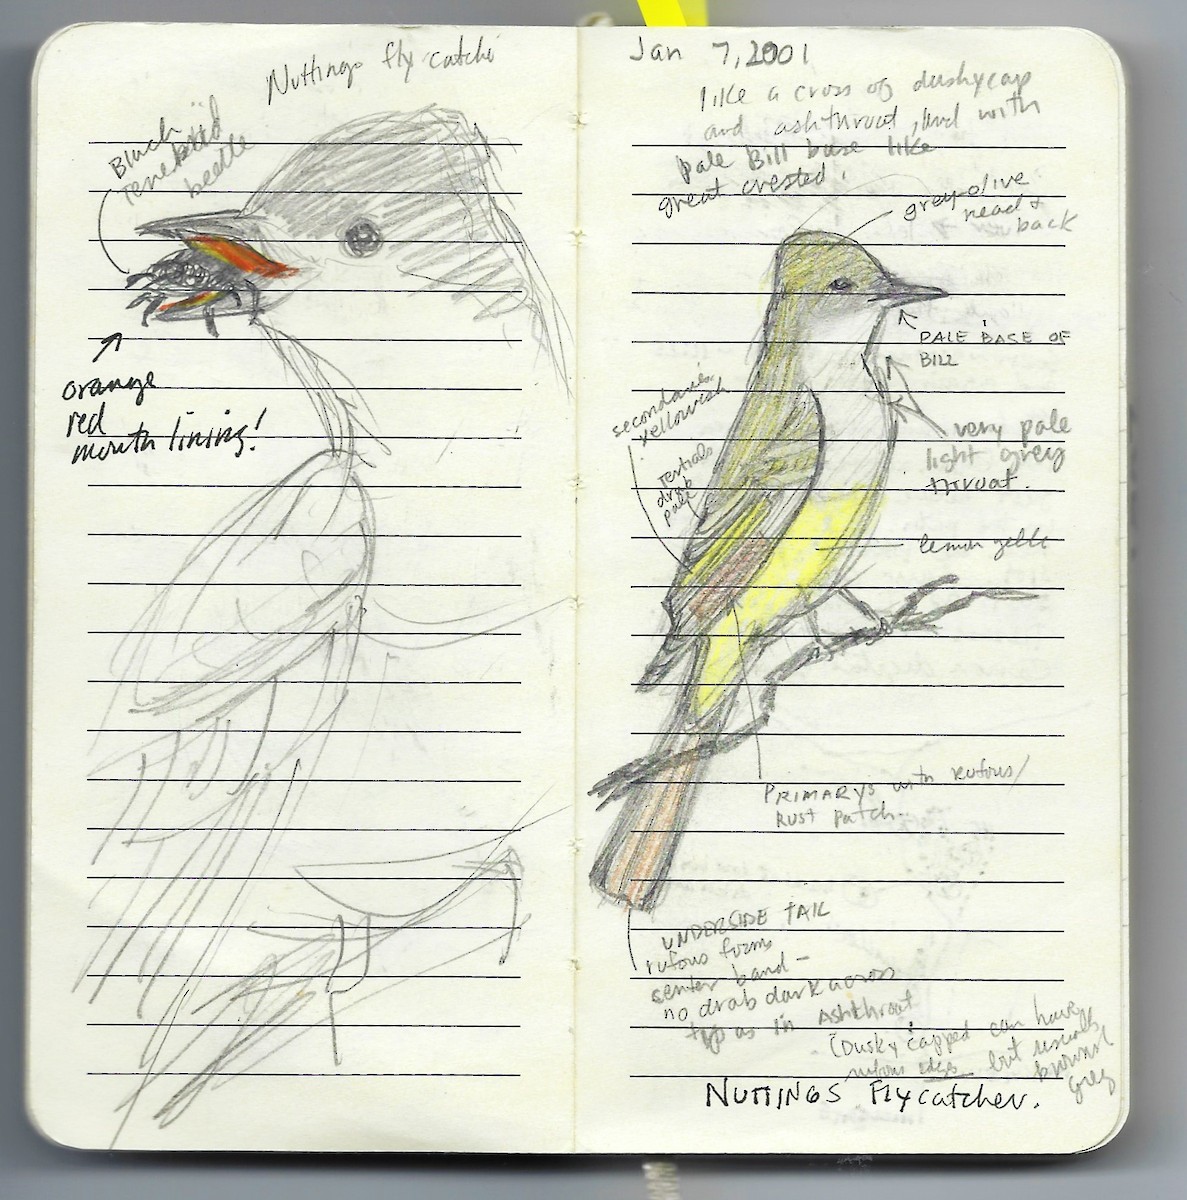 Nuttings fly catche
Black
Tenebriid
beetle
orange
red
mouth lining!
Jan 7, 2001
like a cross of duskycap
and ashthroat, and with
pale Bill base like
great crested.
grey-olive
head &
back
PALE BASE OF
BILL
secondaries
yellowish
Tertials
drab
pale
very pale
light grey
throat.
lemon yello
PRIMARYS with rufous/
RUST patch
UNDERSIDE TAIL
rufous forms
senter band -
no drab dark across
tip as in Ashthroat
(Dusky capped can have
rufous edges but usually
brownish
grey
NUTTINGS Flycatcher.